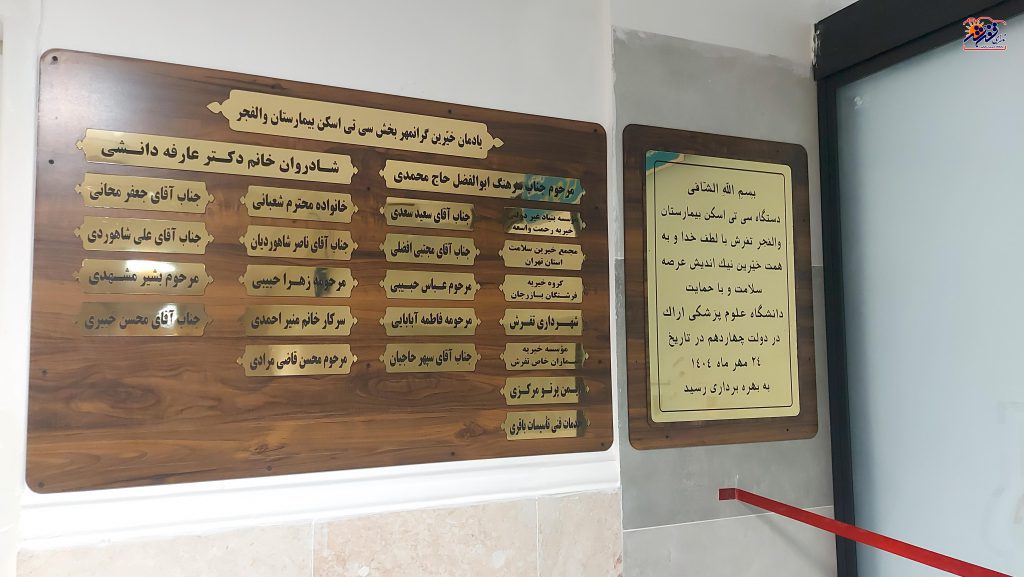 یادمان خیّرین گرانمهر بخش سی تی اسکن بیمارستان والفجر
مرحوم جناب سرهنگ ابوالفضل حاج محمدی
شادروان خانم دکتر عارفه دانشی
مؤسسه بنیاد غیر دولتی
خیریه رحمت واسعه
جناب آقای سعید سعدی
خانواده محترم شعبانی
جناب آقای جعفر محانی
مجمع خیرین سلامت
استان تهران
جناب آقای مجتبی افضلی
جناب آقای ناصر شاهوردیان
جناب آقای علی شاهوردی
گروه خیریه
فرشتگان بازرجان
مرحوم عباس حبیبی
مرحومه زهرا حبیبی
مرحوم بشیر مشهدی
شهرداری تفرش
مرحومه فاطمه آبابایی
سرکار خانم منیر احمدی
جناب آقای محسن جبیری
مؤسسه خیریه
بیماران خاص تفرش
جناب آقای سپهر حاجیان
مرحوم محسن قاضی مرادی
یمن پرتو مرکزی
خدمات فنی تأسیسات باقری
بسم الله الشافی
دستگاه سی تی اسکن بیمارستان
والفجر تفرش با لطف خدا و به
همت خیّرین نیك اندیش عرصه
سلامت و با حمایت
دانشگاه علوم پزشکی اراك
در دولت چهاردهم در تاریخ
۲۴ مهر ماه ۱۴۰۴
به بهره برداری رسید